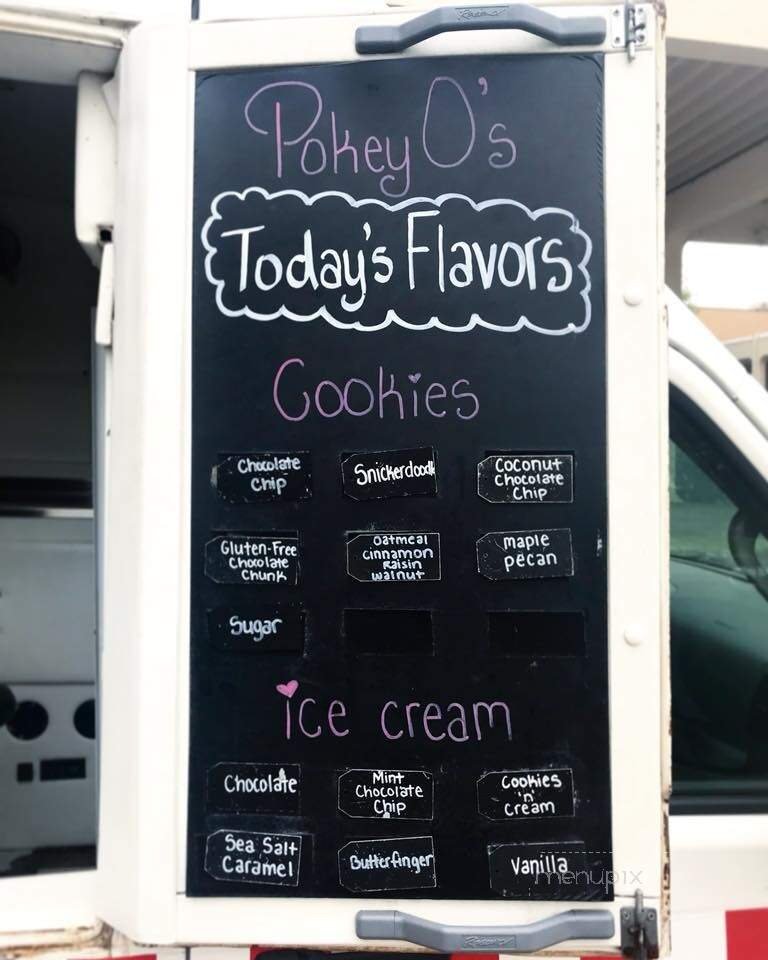 Pokey O's
Today's Flavors
Cookies
Chocolate
Chip
Snickerdoodle
Coconut
Chocolate
Chip
Gluten-Free
Chocolate
Chunk
Oatmeal
cinnamon
Raisin
walnut
maple
pecan
Sugar
ice cream
Chocolate
Mint
Chocolate
Chip
Cookies
'n'
Cream
Sea Salt
Caramel
Butterfinger
Vanilla
menupix